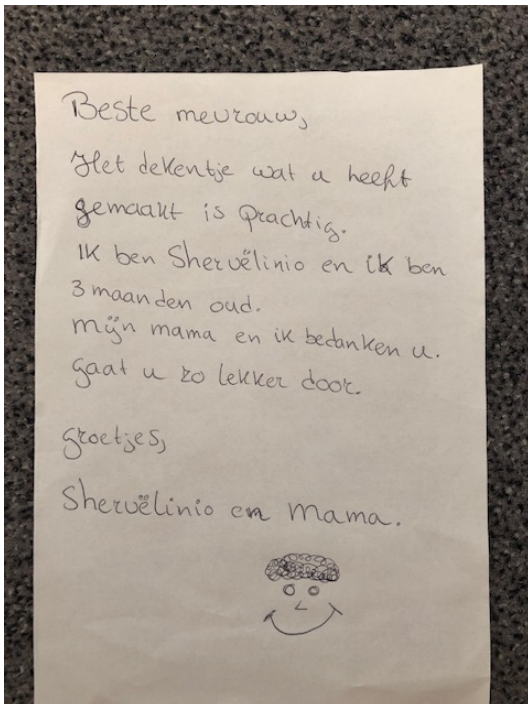 Beste mevrouw,
Het dekentje wat u heeft
gemaakt is prachtig.
Ik ben Shervëlinio en ik ben
3 maanden oud.
mijn mama en ik bedanken u.
gaat u zo lekker door.
groetjes,
Shervëlinio en Mama.